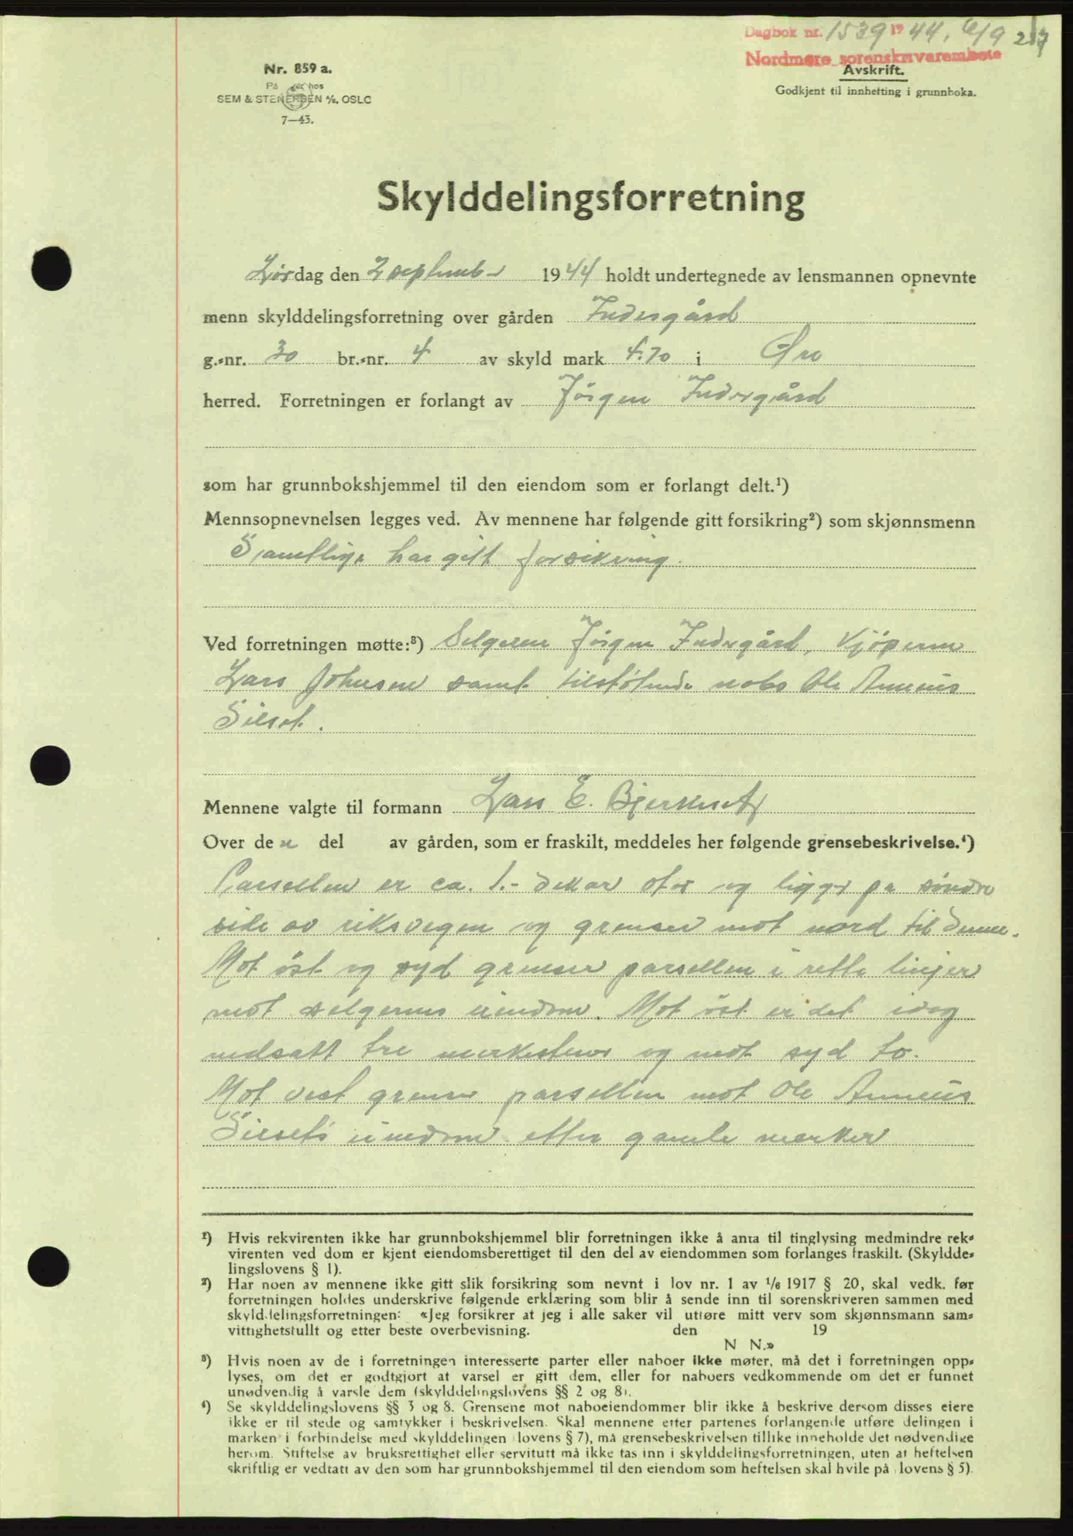 Dagbok nr. 1539 1944, 6/9 217
Nordmøre sorenskriverembete
Avskrift.
Godkjent til innhefting i grunnboka.
Nr. 859 a.
På hos
SEM & STENERSEN A/S, OSLO
7—43.
Skylddelingsforretning
Lørdag den 2 september 1944 holdt undertegnede av lensmannen opnevnte
menn skylddelingsforretning over gården Indergård
g.-nr. 30 br.-nr. 4 av skyld mark 4.70 i Øre
herred. Forretningen er forlangt av Jörgen Indergård
som har grunnbokshjemmel til den eiendom som er forlangt delt.¹)
Mennsopnevnelsen legges ved. Av mennene har følgende gitt forsikring²) som skjønnsmenn
Samtlige har gitt forsikring.
Ved forretningen møtte:³) Selgeren Jörgen Indergård, kjöperen
Lars Johnsen samt tilstötende nabo Ole Anneus
Silset.
Mennene valgte til formann Lars E. Bjerkeset
Over den del av gården, som er fraskilt, meddeles her følgende grensebeskrivelse.⁴)
Parsellen er ca. 1.- dekar stor og ligger på söndre
side av riksvegen og grenser mot nord til denne.
Mot öst og syd grenser parsellen i rette linjer
mot selgerens eiendom. Mot öst er det idag
nedsatt tre merkestener og mot syd to.
Mot vest grenser parsellen mot Ole Anneus
Silsets eiendom etter gamle merker
¹) Hvis rekvirenten ikke har grunnbokshjemmel blir forretningen ikke å anta til tinglysing medmindre rek-
virenten ved dom er kjent eiendomsberettiget til den del av eiendommen som forlanges fraskilt. (Skyldde-
lingslovens § 1).
²) Har noen av mennene ikke gitt slik forsikring som nevnt i lov nr. 1 av 1/6 1917 § 20, skal vedk. før
forretningen holdes underskrive følgende erklæring som blir å sende inn til sorenskriveren sammen med
skylddelingsforretningen: «Jeg forsikrer at jeg i alle saker vil utføre mitt verv som skjønnsmann sam-
vittighetsfullt og etter beste overbevisning. den 19
N N.»
³) Hvis noen av de i forretningen interesserte parter eller naboer ikke møter, må det i forretningen opp-
lyses, om det er godtgjort at varsel er gitt dem, eller for naboers vedkommende om det er funnet
unødvendig å varsle dem (skylddelingslovens §§ 2 og 8).
⁴) Se skylddelingslovens §§ 3 og 8. Grensene mot naboeiendommer blir ikke å beskrive dersom disses eiere
ikke er til stede og samtykker i beskrivelsen. Skal mennene etter partenes forlangende utføre delingen i
marken i forbindelse med skylddelingen (lovens § 7), må grensebeskrivelsen tillike inneholde det nødvendige
herom. Stiftelse av bruksrettighet eller servitutt må ikke tas inn i skylddelingsforretningen, uten at heftelsen
skriftlig er vedtatt av den som har grunnbokshjemmel til den eiendom som heftelsen skal hvile på (lovens § 5).